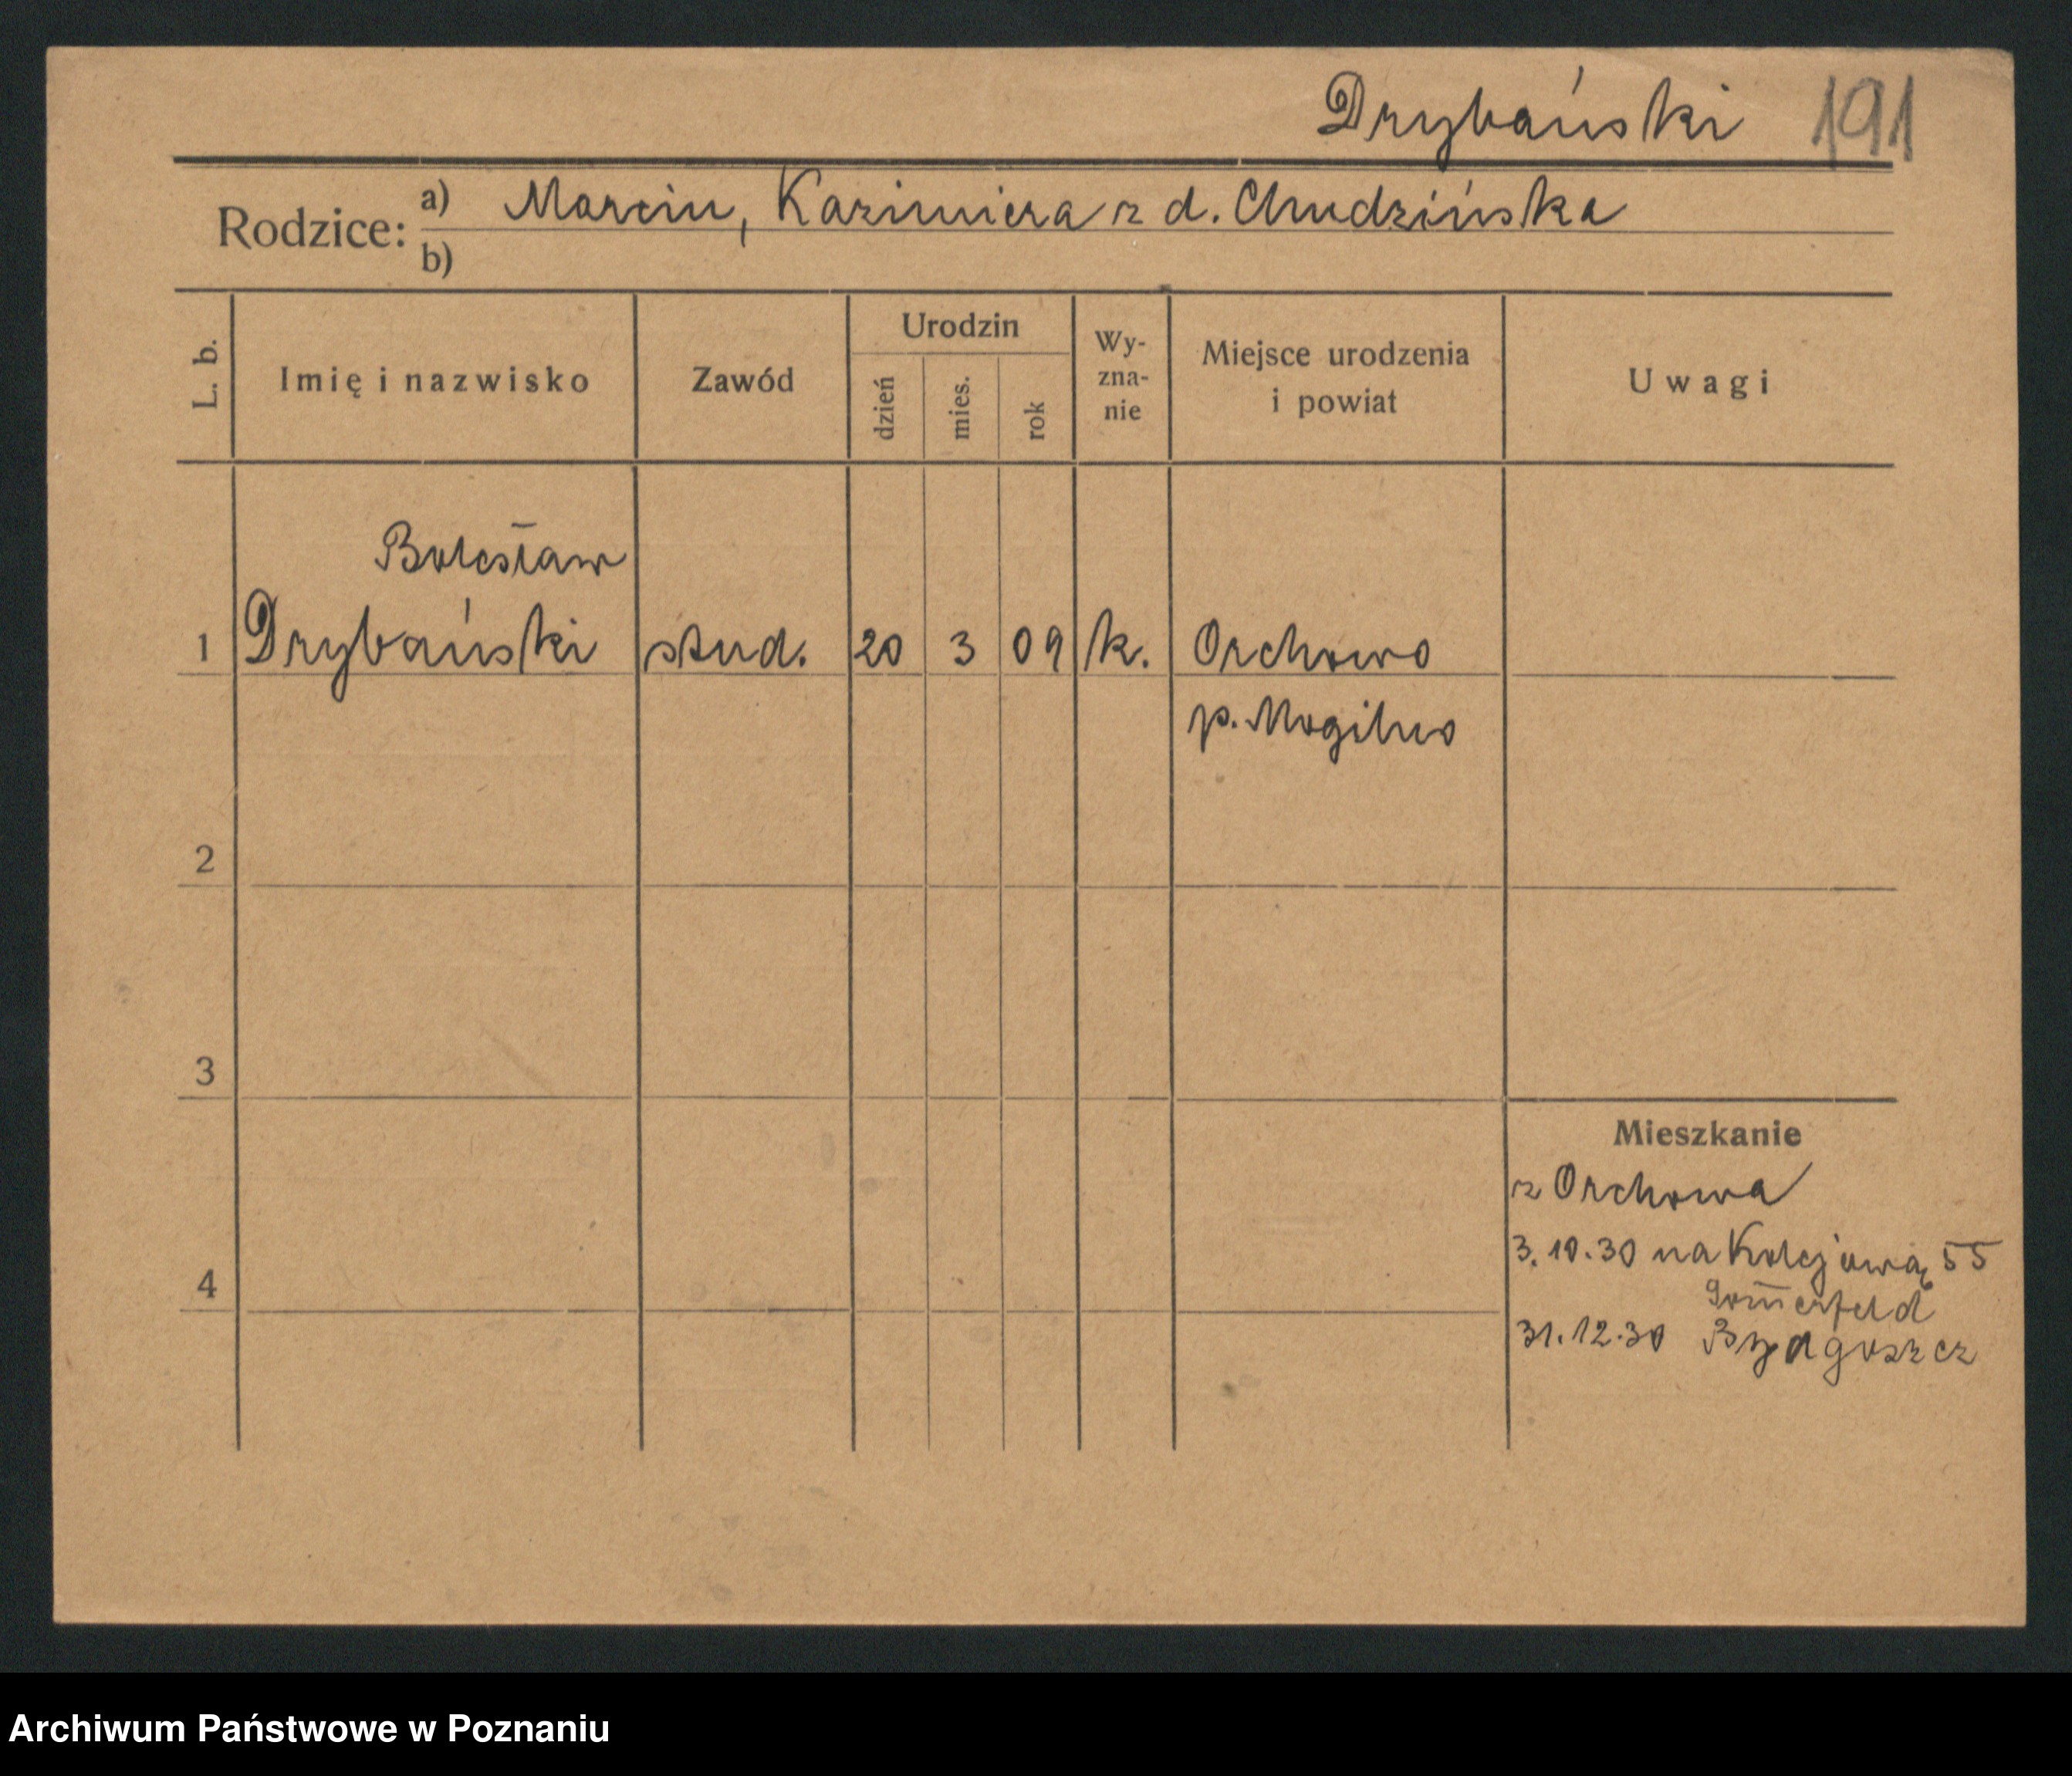 Drybański 191
Rodzice: a) Marcin, Kazimiera z d. Chudzińska
b)
L. b. Imię i nazwisko Zawód Urodzin dzień mies. rok Wy-zna-nie Miejsce urodzenia i powiat Uwagi
Bolesław
1 Drybański stud. 20 3 09 k. Orchowo
p. Mogilno
2
3
Mieszkanie
z Orchowa
3.10.30 na Kolejową 55
4
Som̅erfeld
31.12.30 Bydgoszcz
Archiwum Państwowe w Poznaniu